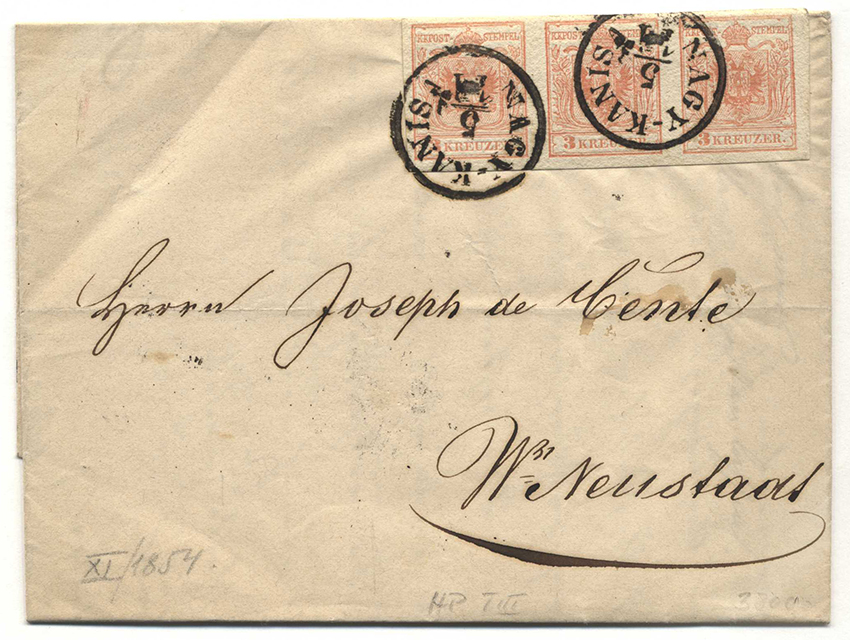 KKPOST-STEMPEL KKPOST-STEMPEL KKPOST-STEMPEL
3 KREUZER 3 KREUZER 3 KREUZER.
NAGY-KANISA
5
NAGY-KANISA
5
Herrn Joseph de Cente
Wr Neustadt
XI/1854.
HP TIII